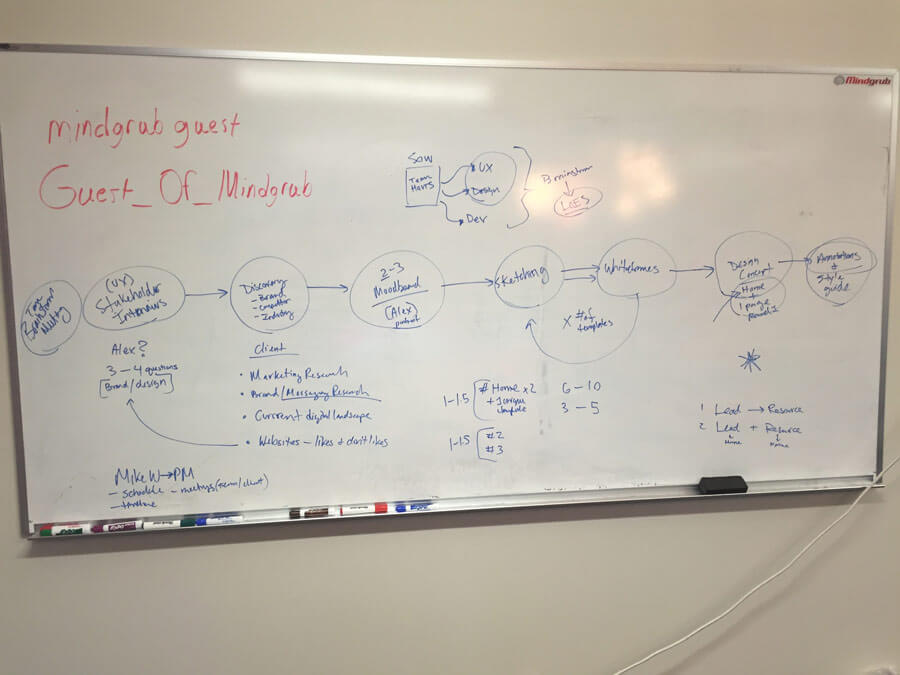 Mindgrub
mindgrub guest
Guest_Of_Mindgrub
SOW
Team
Hours
UX
Design
Dev
Brainstorm
Team
Brainstorm
Meeting
(UX)
Stakeholder
Interviews
Discovery
- Brand
- Industry
2-3
Moodboard
(Alex)
Sketching
Wireframes
X # of
templates
Design
Concept
Home
+
1 page
Annotations
+
Style
guide
Alex?
3-4 questions
Brand/design
Client
• Marketing Research
• Brand/Messaging Research
• Current digital landscape
• Websites - likes + don't likes
1-1.5
# Home x2
+ 1 unique
6-10
3-5
1-1.5
#2
#3
1 Lead → Resource
2 Lead + Resource
Mike W → PM
- schedule - meetings (team/client)
- timeline